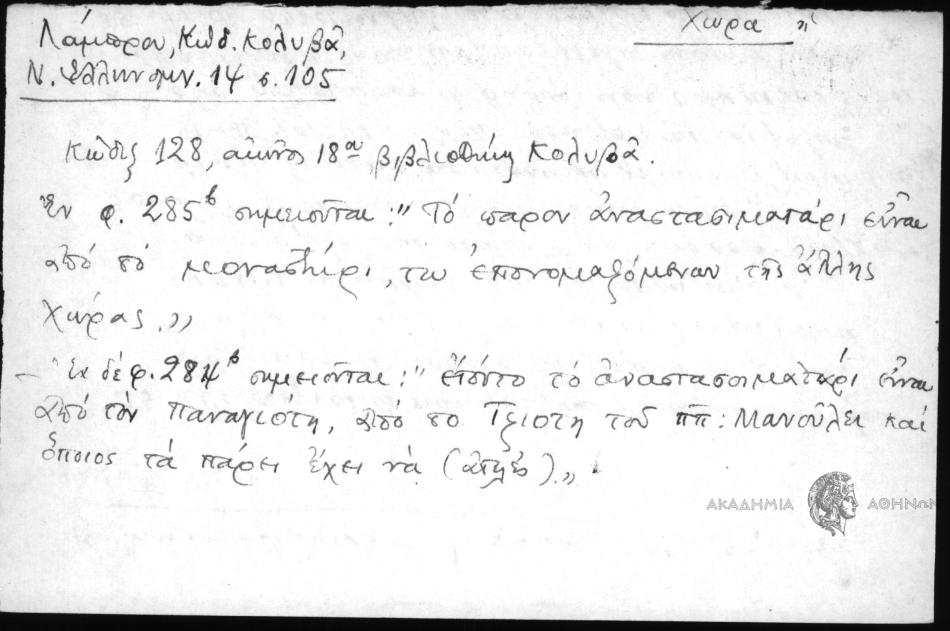 Χώρα ἡ
Λάμπρου, Κώδ. Κολυβᾶ,
Ν. Ἑλληνομν. 14 σ. 105
Κῶδιξ 128, αἰῶνος 18ου βιβλιοθήκης Κολυβᾶ.
Ἐν φ. 285β σημειοῦται: "Τό παρον ἀναστασιματάρι εἶναι
ἀπό το μοναστίρι, τω ἐπονομαζόμεναν τῆς
Χώρας."
- Ἐν δέ φ. 284β σημειοῦται: " το ἀναστασοιματάρι εἶναι
ἀπό τόν Παναγιοτη, ἀπό το Τζιοτη τοῦ ππ: Μανοῦλει καί
ὅποιος τά πάρει ἔχει νά (ἀτελές)."
ΑΚΑΔΗΜΙΑ ΑΘΗΝΩΝ